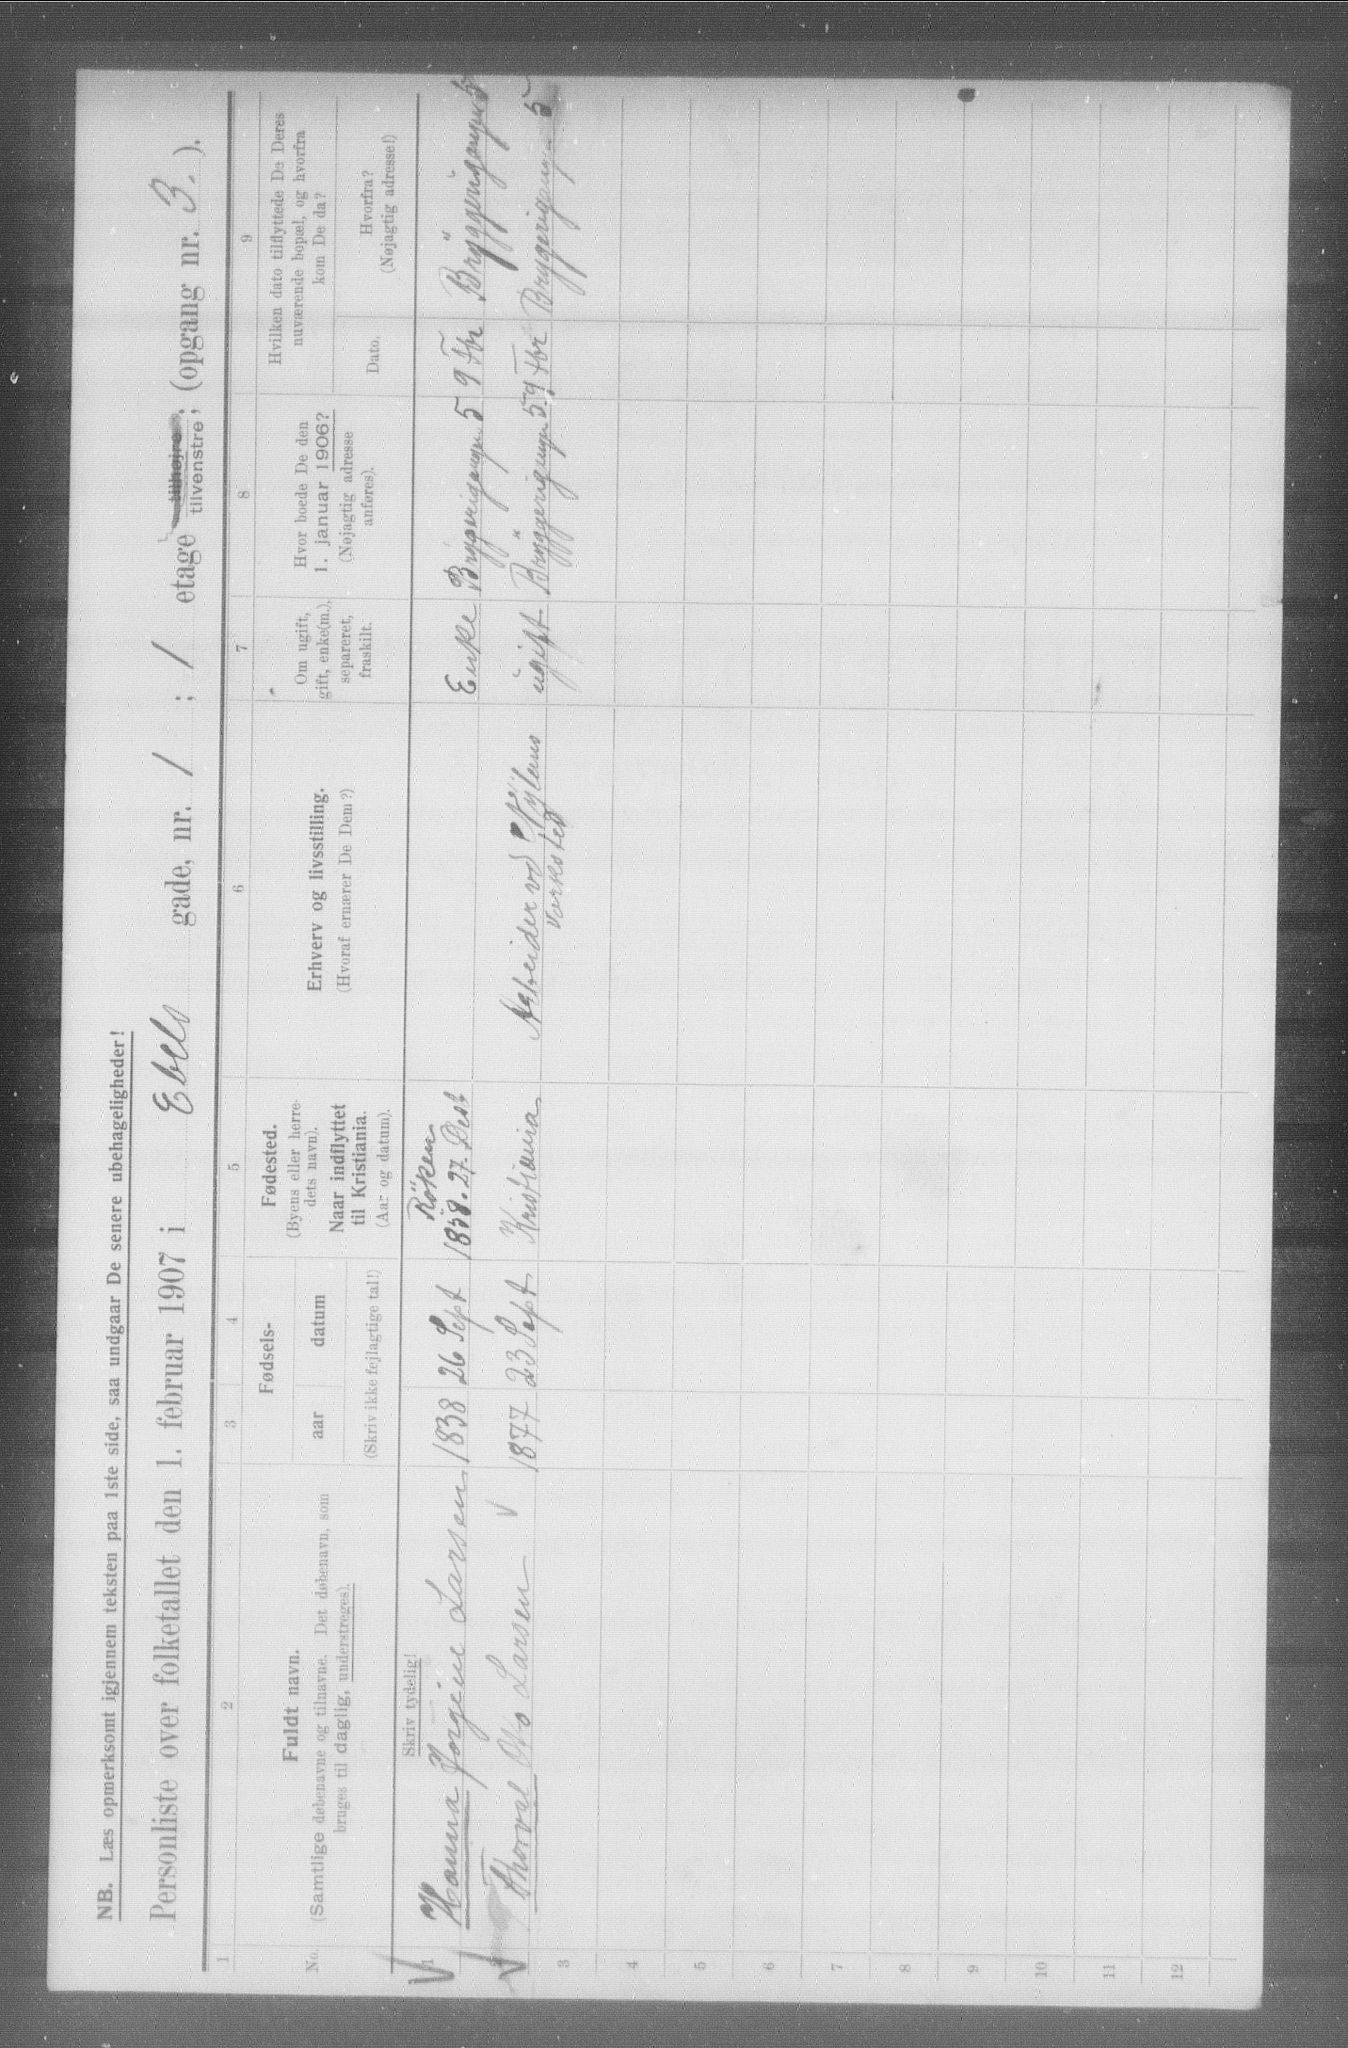 NB. Læs opmerksomt igjennem teksten paa 1ste side, saa undgaar De senere ubehageligheder!
Personliste over folketallet den 1. februar 1907 i Ebels gade, nr. 1; 1 etage tilhøjre, tilvenstre, (opgang nr. 3.).
1 2 3 4 5 6 7 8 9
No.
Fuldt navn.
(Samtlige døbenavne og tilnavne. Det døbenavn, som
bruges til daglig, understreges).
Fødsels-
aar datum
(Skriv ikke fejlagtige tal!)
Fødested.
(Byens eller herre-
dets navn).
Naar indflyttet
til Kristiania.
(Aar og datum).
Erhverv og livsstilling.
(Hvoraf ernærer De Dem?)
Om ugift,
gift, enke(m.),
separeret,
fraskilt.
Hvor boede De den
1. januar 1906?
(Nøjagtig adresse
anføres).
Hvilken dato tilflyttede De Deres
nuværende bopæl, og hvorfra
kom De da?
Dato.
Hvorfra?
(Nøjagtig adresse!)
Skriv tydelig!
1 Hanna Jorgine Larsen 1838 26 Sept Röken 1858. 27. Enke Bryggerigangen 5 9 Fbr Bryggerigangen 5
Thorval Oto Larsen 1877 23 Sept Kristiania Arbeider ved Nylans Verksted ugift Bryggerigangen 5 9 Fbr Bryggerigangen 5
3
4
5
6
7
8
9
10
11
12